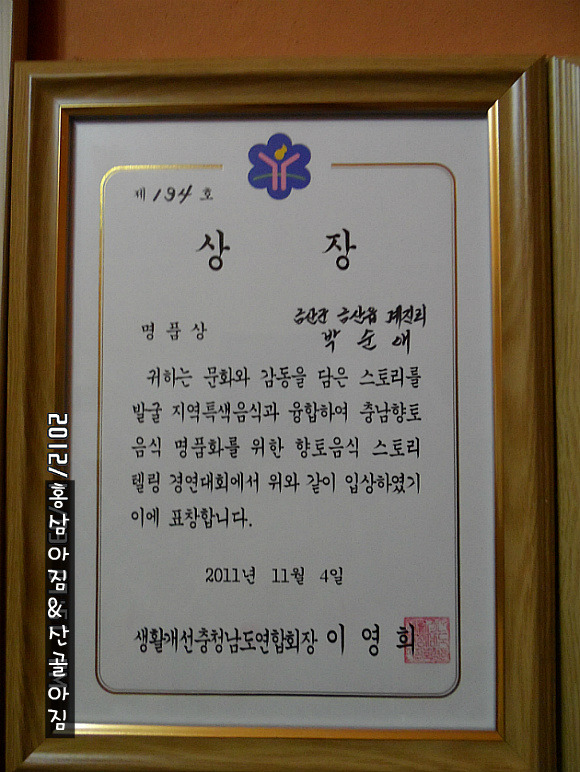 제 194 호
상 장
명 품 상
금산군 금산읍 계진리
박 순 애
귀하는 문화와 감동을 담은 스토리를
발굴 지역특색음식과 융합하여 충남향토
음식 명품화를 위한 향토음식 스토리
텔링 경연대회에서 위와 같이 입상하였기
이에 표창합니다.
2011년 11월 4일
생활개선충청남도연합회장 이 영 희
2012/홍삼아짐&산골아짐